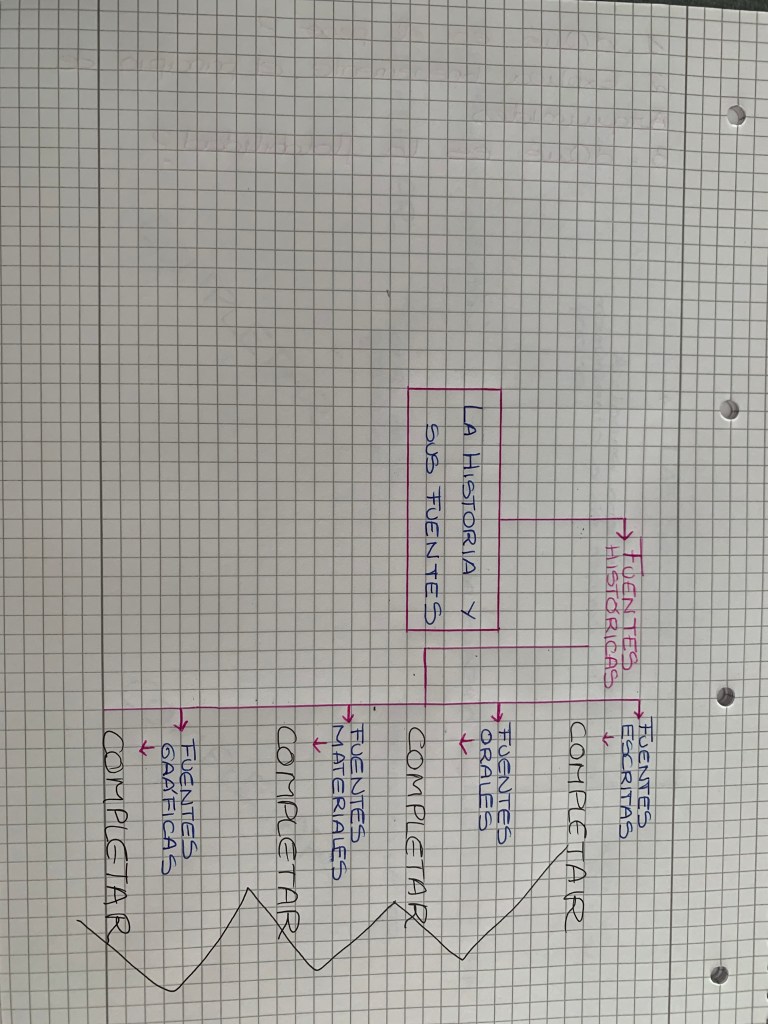 LA HISTORIA Y
SUS FUENTES
FUENTES
HISTÓRICAS
FUENTES
ESCRITAS
COMPLETAR
FUENTES
ORALES
COMPLETAR
FUENTES
MATERIALES
COMPLETAR
FUENTES
GAÁFICAS
COMPLETAR